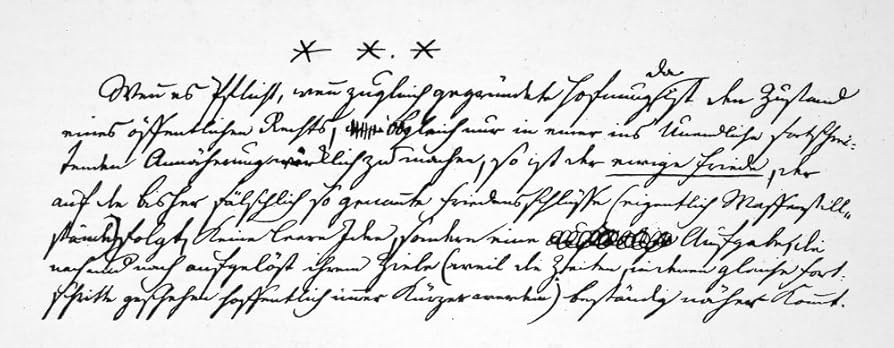 * * *
Wenn es Pflicht, wenn zugleich gegründete Hofnung da ist, den Zustand
eines öffentlichen Rechts, obgleich nur in einer ins Unendliche fortschrei-
tenden Annäherung wirklich zu machen, so ist der ewige Friede, der
auf die bisher fälschlich so genannte Friedensschlüsse (eigentlich Waffenstill-
stände) folgt, keine leere Idee, sondern eine Aufgabe, die
nach und nach aufgelöst ihrem Ziele (weil die Zeiten, in denen gleiche Fort-
schritte geschehen hoffentlich immer kürzer werden) beständig näher kommt.